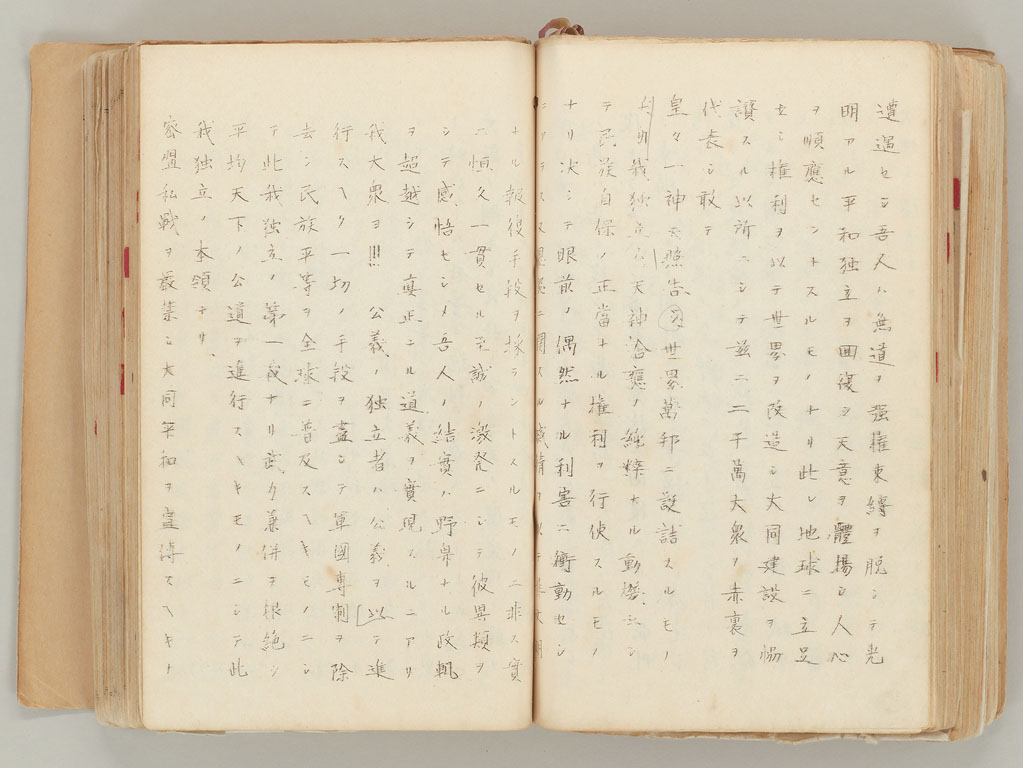 遭遇セシ吾人ハ無道ヲ強權束縛ヲ脱シテ光
明アル平和独立ヲ回復ヲ天意ヲ體揚シ人心
ヲ順應セントスルモノナリ此レ地球ニ立足
セシ權利ヲ以テ世界ヲ改造シ大同建設ヲ協
讃スル以所ニシテ茲ニ二千萬大衆ノ赤裏ヲ
代表シ敢テ
皇々一神 照告 世界萬邦ニ設詰スルモノ
我独立ハ天神洽應ノ純粹ナル動機ニシ
テ民族自保ノ正當ナル權利ヲ行使スルモノ
ナリ決シテ眼前ノ偶然ナル利害ニ衝動セシ
ナル報復手段ヲ採ラントスルモノニ非ス實
ニ恒久一貫セル至誠ノ激発ニシテ彼異類ヲ
シテ感悟セシメ吾人ノ結實ハ野卑ナル政軌
ヲ超越シテ眞正ニル道義ヲ實現スルニアリ
我大衆ヨ!!!公義ノ独立者ハ公義ヲ以テ進
行スヘク一切ノ手段ヲ盡シテ軍國専制ヲ除
去シ民族平等ヲ全球ニ普及スヘキモノニシ
テ此我独立ノ第一義ナリ武力兼併ヲ根絶シ
平均天下ノ公道ヲ進行スヘキモノニシテ此
我独立ノ本領ナリ、
密盟私戦ヲ嚴禁シ大同平和ヲ宣傳スヘキト